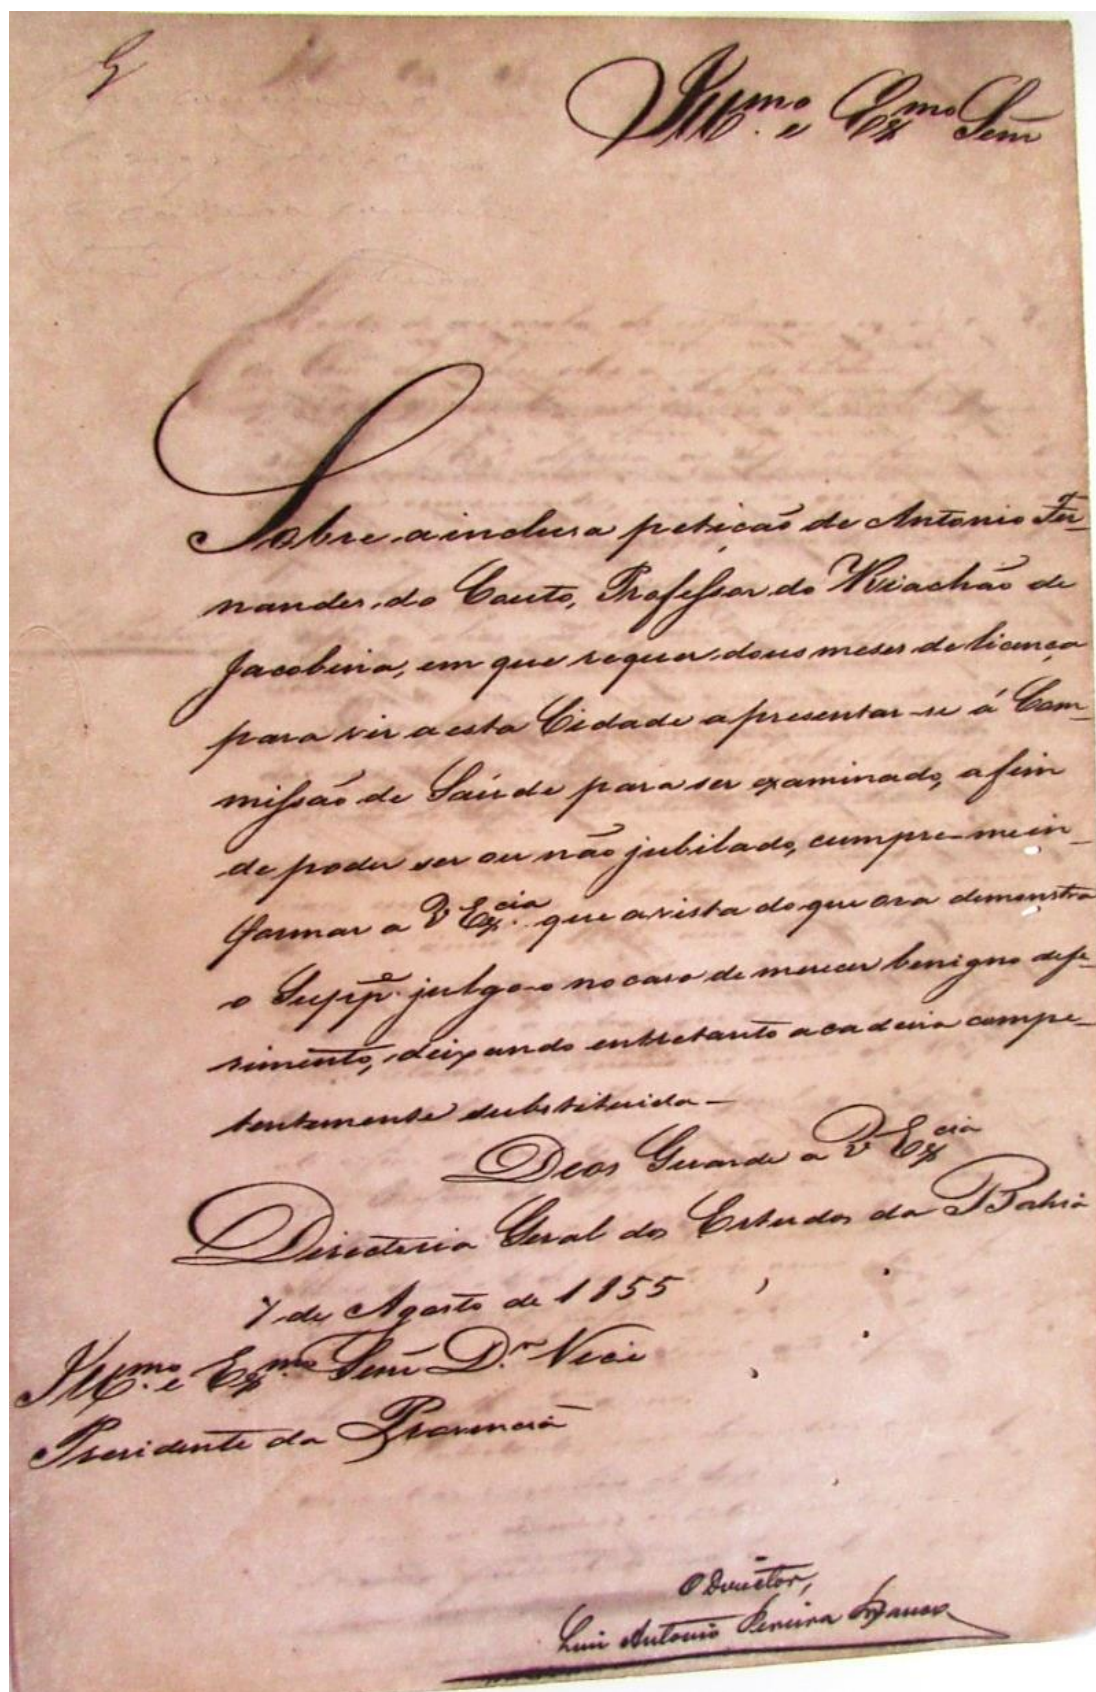 Ill.mo e Ex.mo Senr
Sobre a inclusa petição de Antonio Fer-
nandes do Couto, Professor do Riachão de
Jacobina, em que requer dous meses de licença
para vir a esta Cidade apresentar-se á Com-
missão de Saúde para ser examinado, a fim
de poder ser ou não jubilado, cumpre-me in-
formar a V Ex.cia que a vista do que ora demonstra
o Supp.e julgo-o no caso de merecer benigno defe-
rimento, deixando entretanto a cadeira compe-
tentemente substituida-
Deos Guarde a V Ex.cia
Directoria Geral dos Estudos da Bahia
7 de Agosto de 1855
Ill.mo e Ex.mo Senr D.r Vice
Presidente da Provincia
O Director,
Luis Antonio Pereira Franco